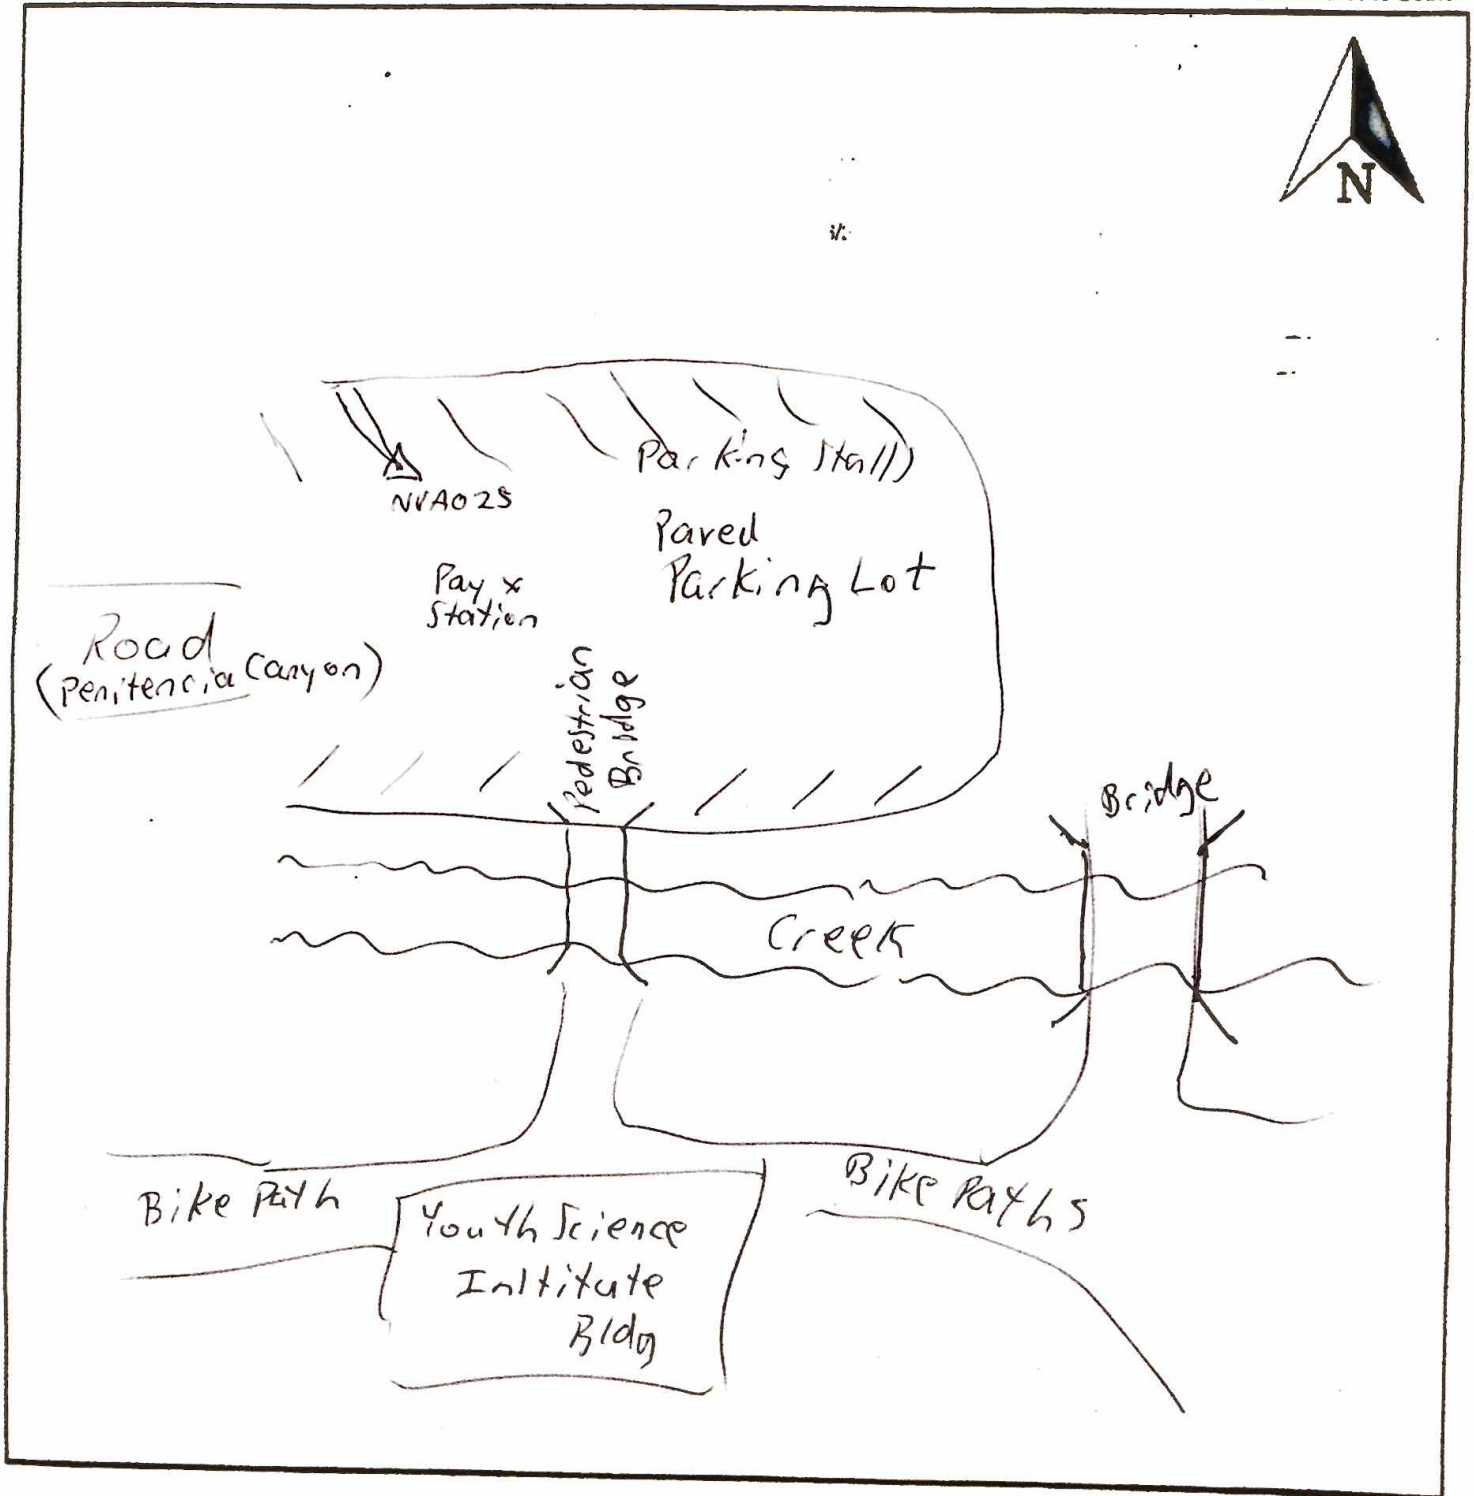 N
Parking Stalls
NVA025
Paved
Parking Lot
Pay x
Station
Road
(Penitencia Canyon)
Pedestrian
Bridge
Bridge
Creek
Bike Path
Bike Paths
Youth Science
Institute
Bldg